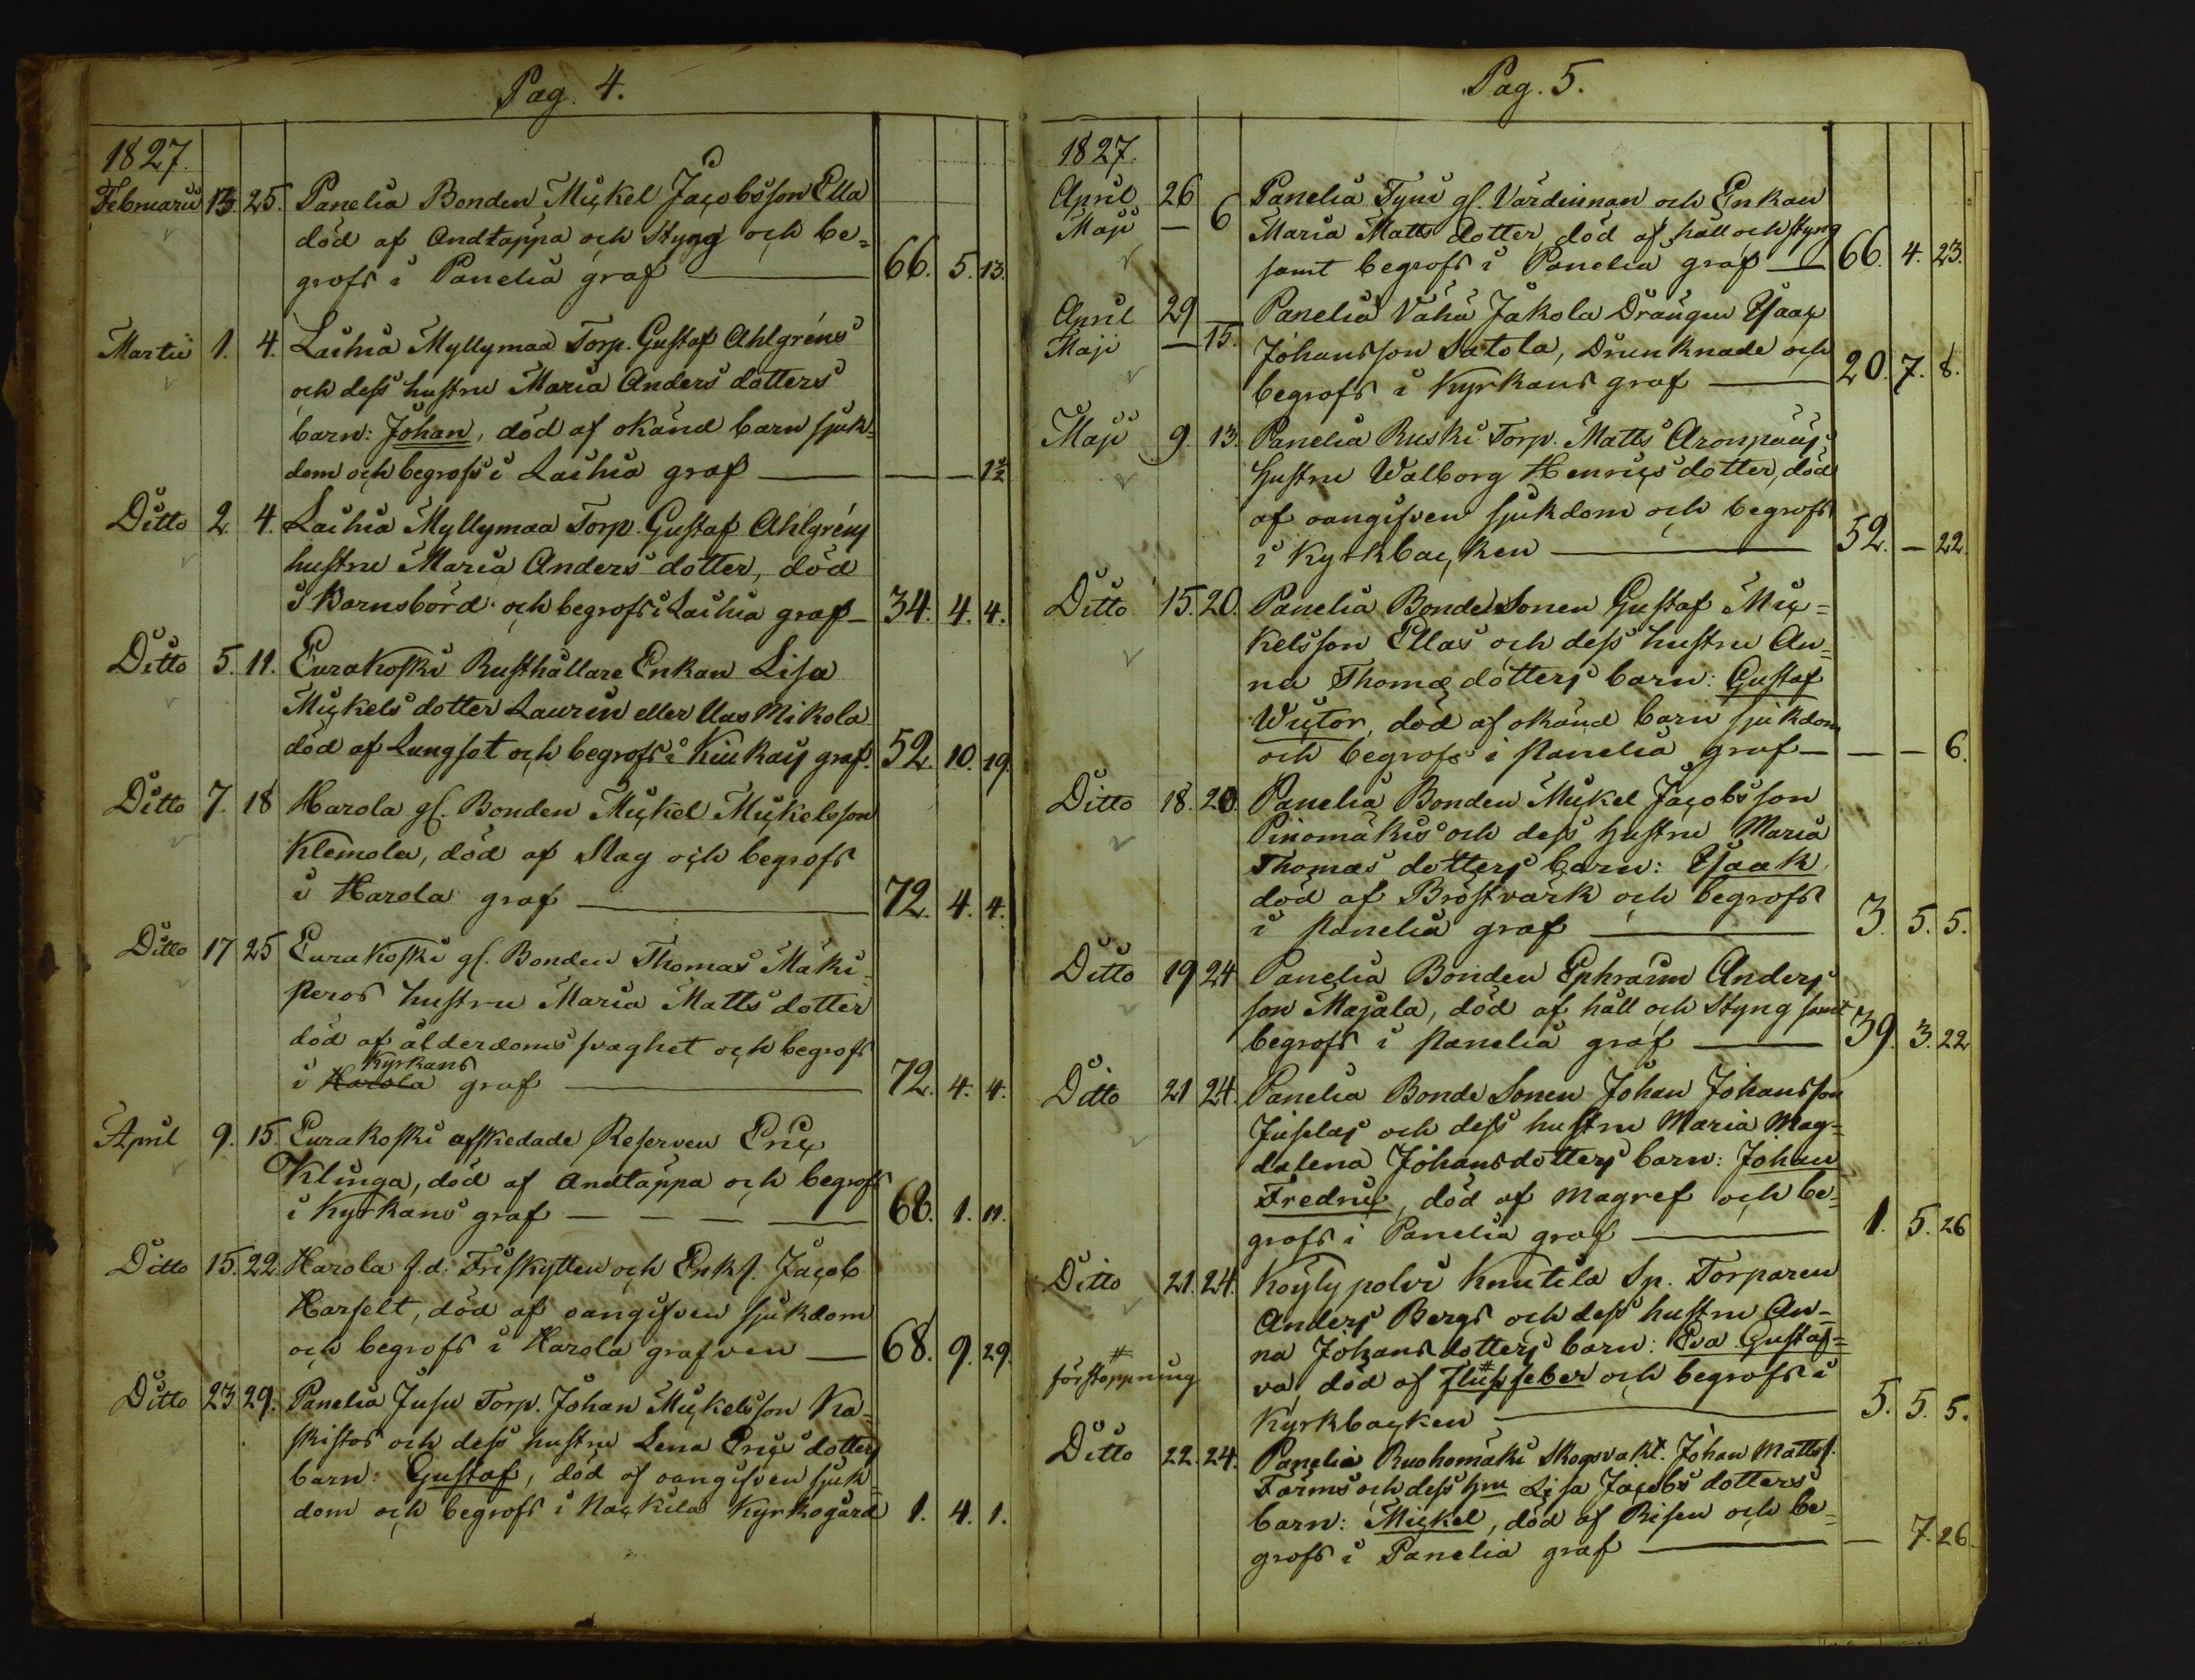 Pag. 4.
1827.
Februarii 13. 25. Panelia Bonden Mickel Jacobsson Ella
död af Andtäppa och Stygg och be=
grofs i Panelia graf — 66. 5. 13.
Martii 1. 4. Laihia Myllymaa Torp. Gustaf Ahlgréns
och dess hustru Maria Anders dotters
barn: Johan, död af okänd barn sjuk=
dom och begrofs i Laihia graf — — — 1½
Ditto 2. 4. Laihia Myllymaa Torp. Gustaf Ahlgréns
hustru Maria Anders dotter, död
i Barnsbörd och begrofs i Laihia graf — 34. 4. 4.
Ditto 5. 11. Eurakoski Rusthållare Enkan Lisa
Mickels dotter Laurin eller Uus Mikola
död af Lungsot och begrofs i Kiukais graf. 52. 10. 19.
Ditto 7. 18 Harola gl. Bonden Mickel Mickelsson
Klemola, död af Slag och begrofs
i Harola graf — 72. 4. 4.
Ditto 17 25 Eurakoski gl. Bonden Thomas Mäki=
peros hustru Maria Matts dotter
död af ålderdoms svaghet och begrofs
Kyrkans
i Harola graf — 72. 4. 4.
April 9. 15. Eurakoski afskedade Reserven Eric
Klinga, död af Andtäppa och begrofs
i Kyrkans graf — — — — 68. 1. 11.
Ditto 15. 22. Harola f.d. Friskytten och Enkl. Jacob
Harfelt, död af oangifven sjukdom
och begrofs i Harola grafven — 68. 9. 29.
Ditto 23 29. Panelia Jusu Torp. Johan Mickelsson Ka=
skistos och dess hustru Lena Erics dotters
barn: Gustaf, död af oangifven sjuk=
dom och begrofs i Nackila Kyrkogård 1. 4. 1.
Pag. 5.
1827.
April 26 Panelia Tyni gl. Värdinnan och Enkan
Maji — 6 Maria Matts dotter död af håll och styng
samt begrofs i Panelia graf — 66. 4. 23.
April 29 — Panelia Vähä Jakola Drängen Isaac
Maji — 15. Johansson Satola, Drunknade och
begrofs i Kyrkans graf — 20. 7. 8.
Maji 9. 13. Panelia Ruski Torp. Matts Aronpääs
Hustru Walborg Henrics dotter, död
af oangifven sjukdom och begrofs
i Kyrkbacken — 52. — 22.
Ditto 15. 20. Panelia Bonde Sonen Gustaf Mic=
kelsson Ellas och dess hustru An=
na Thomæ dotters barn: Gustaf
Wictor, död af okänd barn sjukdom
och begrofs i Panelia graf — — — 6.
Ditto 18. 20. Panelia Bonden Mickel Jacobsson
Pinomäkis och dess hustru Maria
Thomas dotters barn: Isaak,
död af Bröstvärk och begrofs
i Panelia graf — 3. 5. 5.
Ditto 19 24 Panelia Bonden Ephraim Anders
son Majala, död af håll och Styng samt
begrofs i Panelia graf — 39. 3. 22
Ditto 21 24. Panelia Bonde Sonen Johan Johansson
Juselas och dess hustru Maria Mag=
dalena Johansdotters barn: Johan
Fredric, död af Magref och be=
grofs i Panelia graf — 1. 5. 26
Ditto 21. 24. Köylypolvi Knutila Sp. Torparen
Anders Bergs och dess hustru An=
na Johansdotters barn: Eva Gustaf=
# förstoppning va, död af # Flussfeber och begrofs i
Kyrkbacken — 5. 5. 5.
Ditto 22. 24. Panelia Ruohomäki Skogsvakt. Johan Mattss.
Färms och dess hru Lisa Jacobs dotters
barn: Mickel, död af Risen och be=
grofs i Panelia graf — — 7. 26.